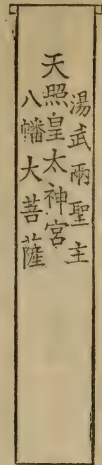 湯武兩聖主
天照皇太神宮
八幡大菩薩